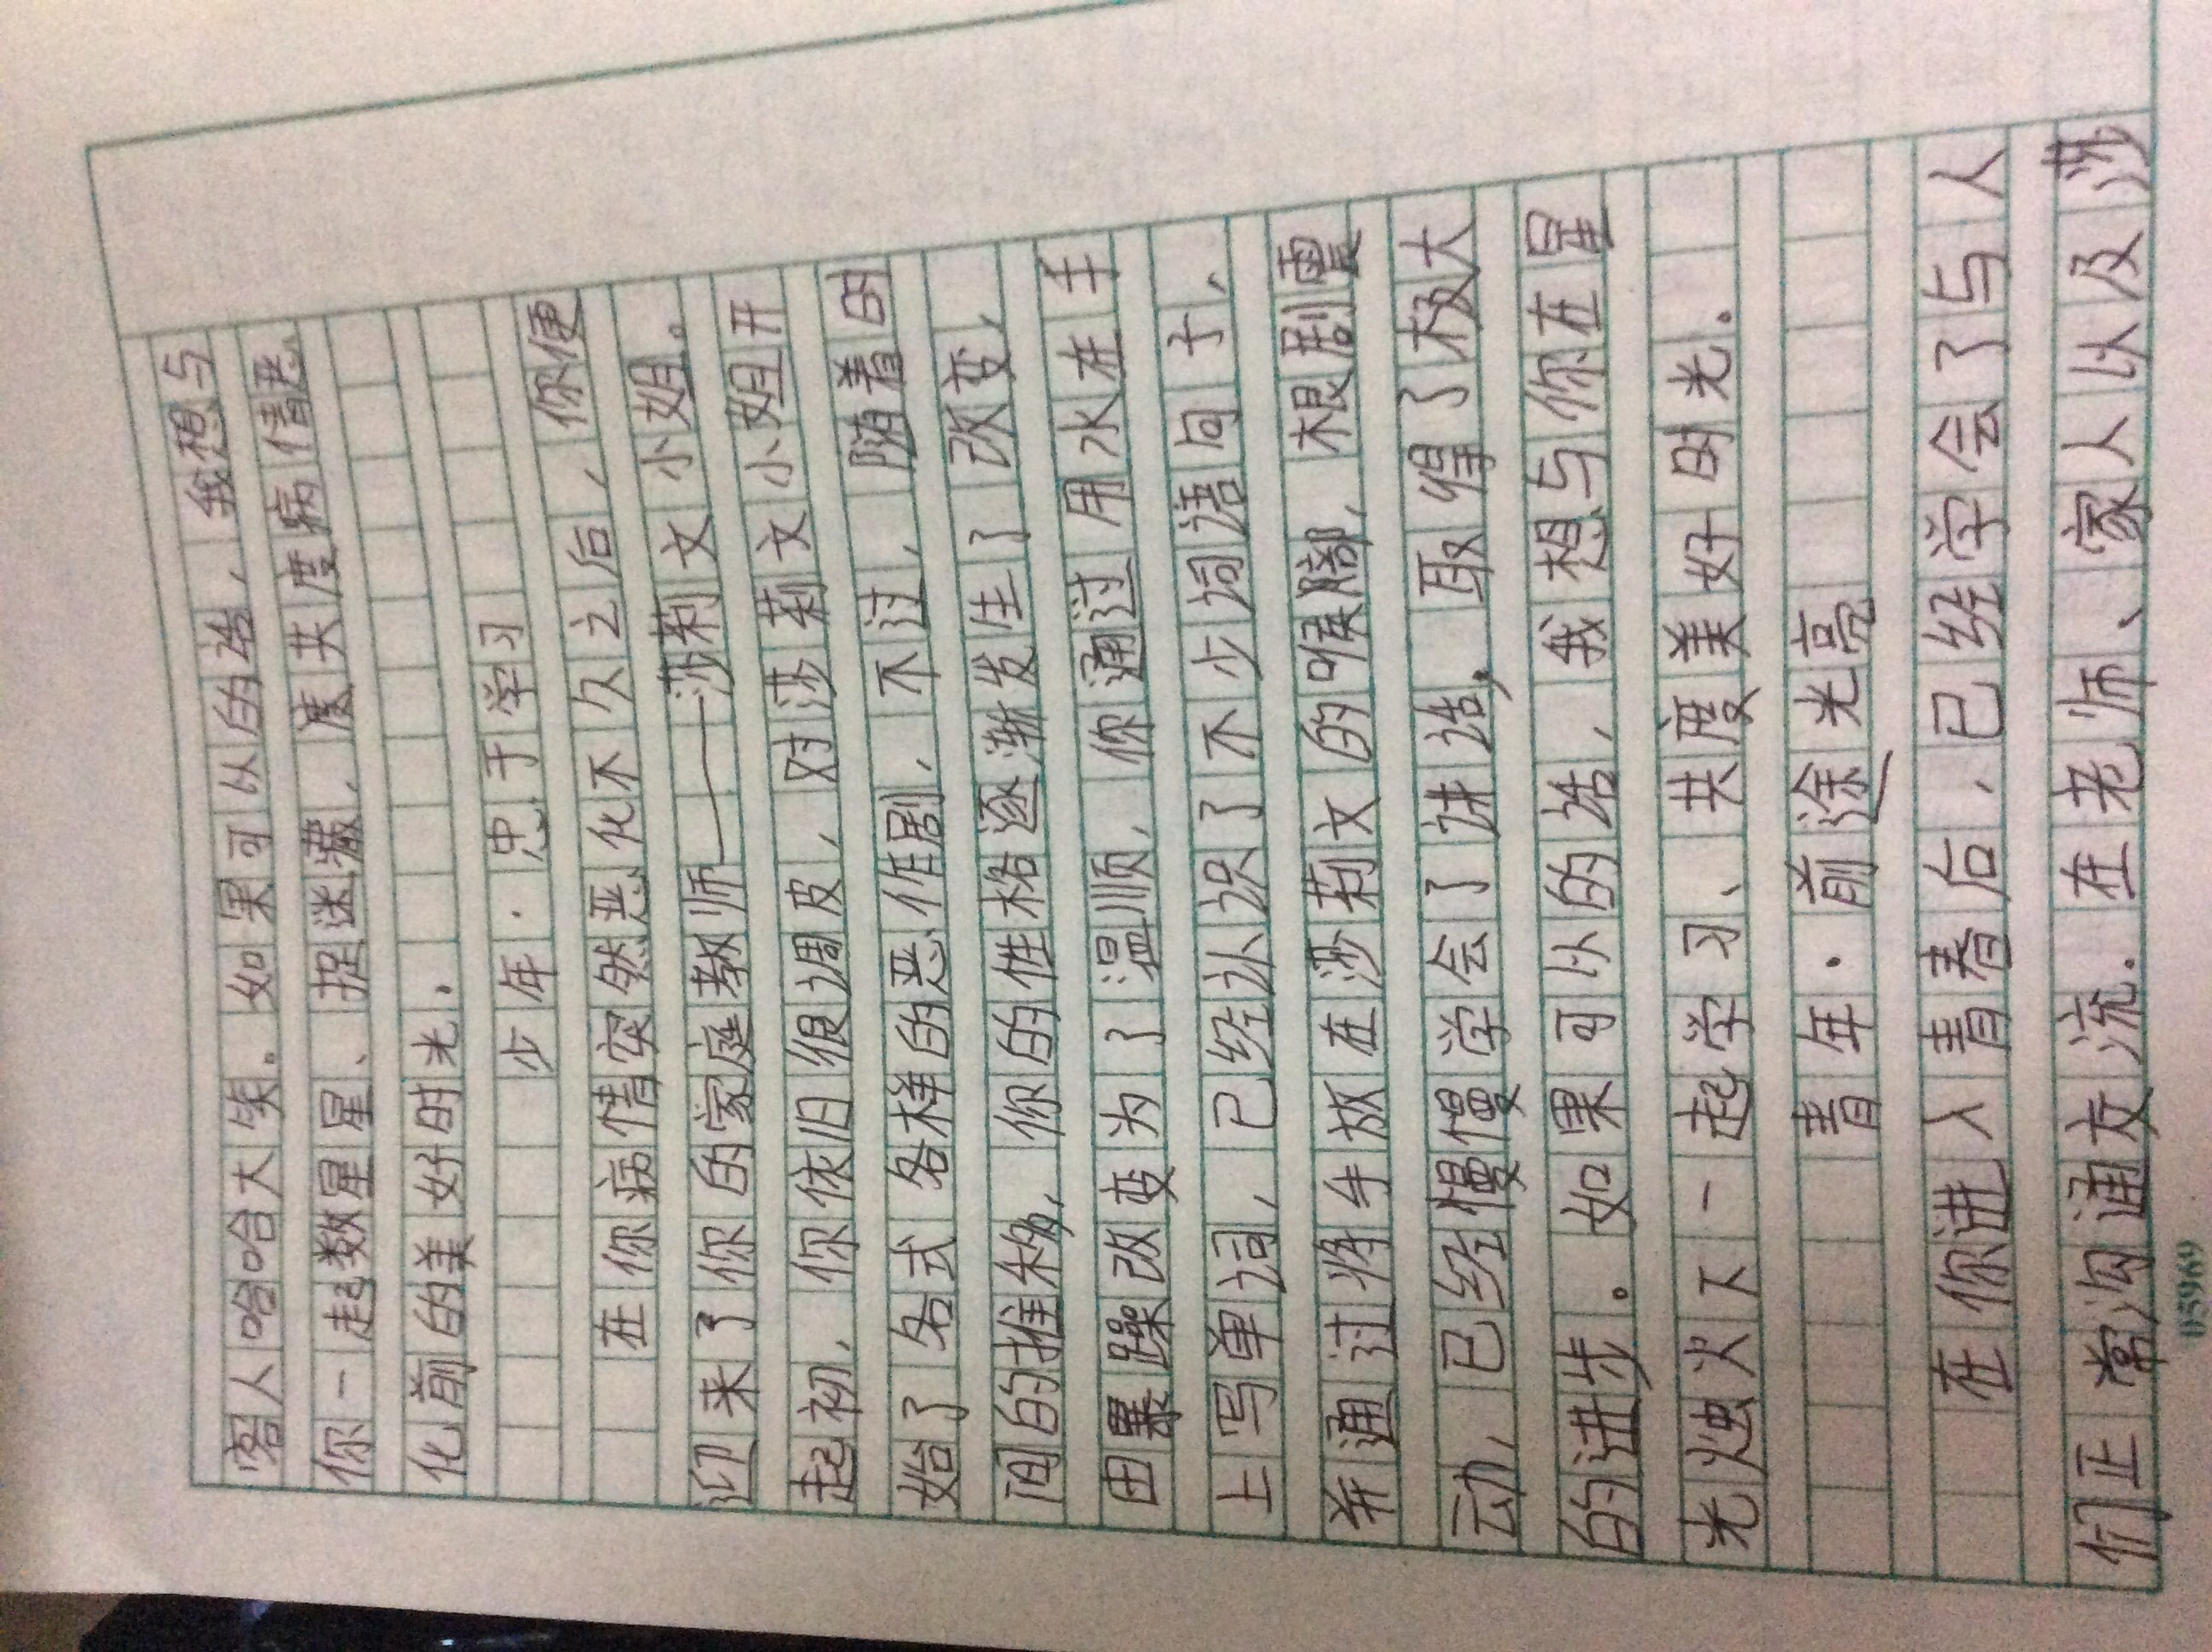 客人哈哈大笑。如果可以的话，我想与
你一起数星星、捉迷藏，共度病情恶
化前的美好时光。
少年·忠于学习
在你病情突然恶化不久之后，你便
迎来了你的家庭教师——莎莉文小姐。
起初，你依旧很调皮，对莎莉文小姐开
始了各式各样的恶作剧，不过，随着时
间的推移，你的性格逐渐发生了改变，
由暴躁改变为了温顺，你通过用水在手
上写单词，已经认识了不少词语句子，
并通过将手放在莎莉文的喉部，根据震
动，已经慢慢学会了讲话，取得了极大
的进步。如果可以的话，我想与你在星
光烛火下一起学习、共度美好时光。
青年·前途光亮
在你进入青春后，已经学会了与人
们正常沟通交流。在老师、家人以及莎
05969